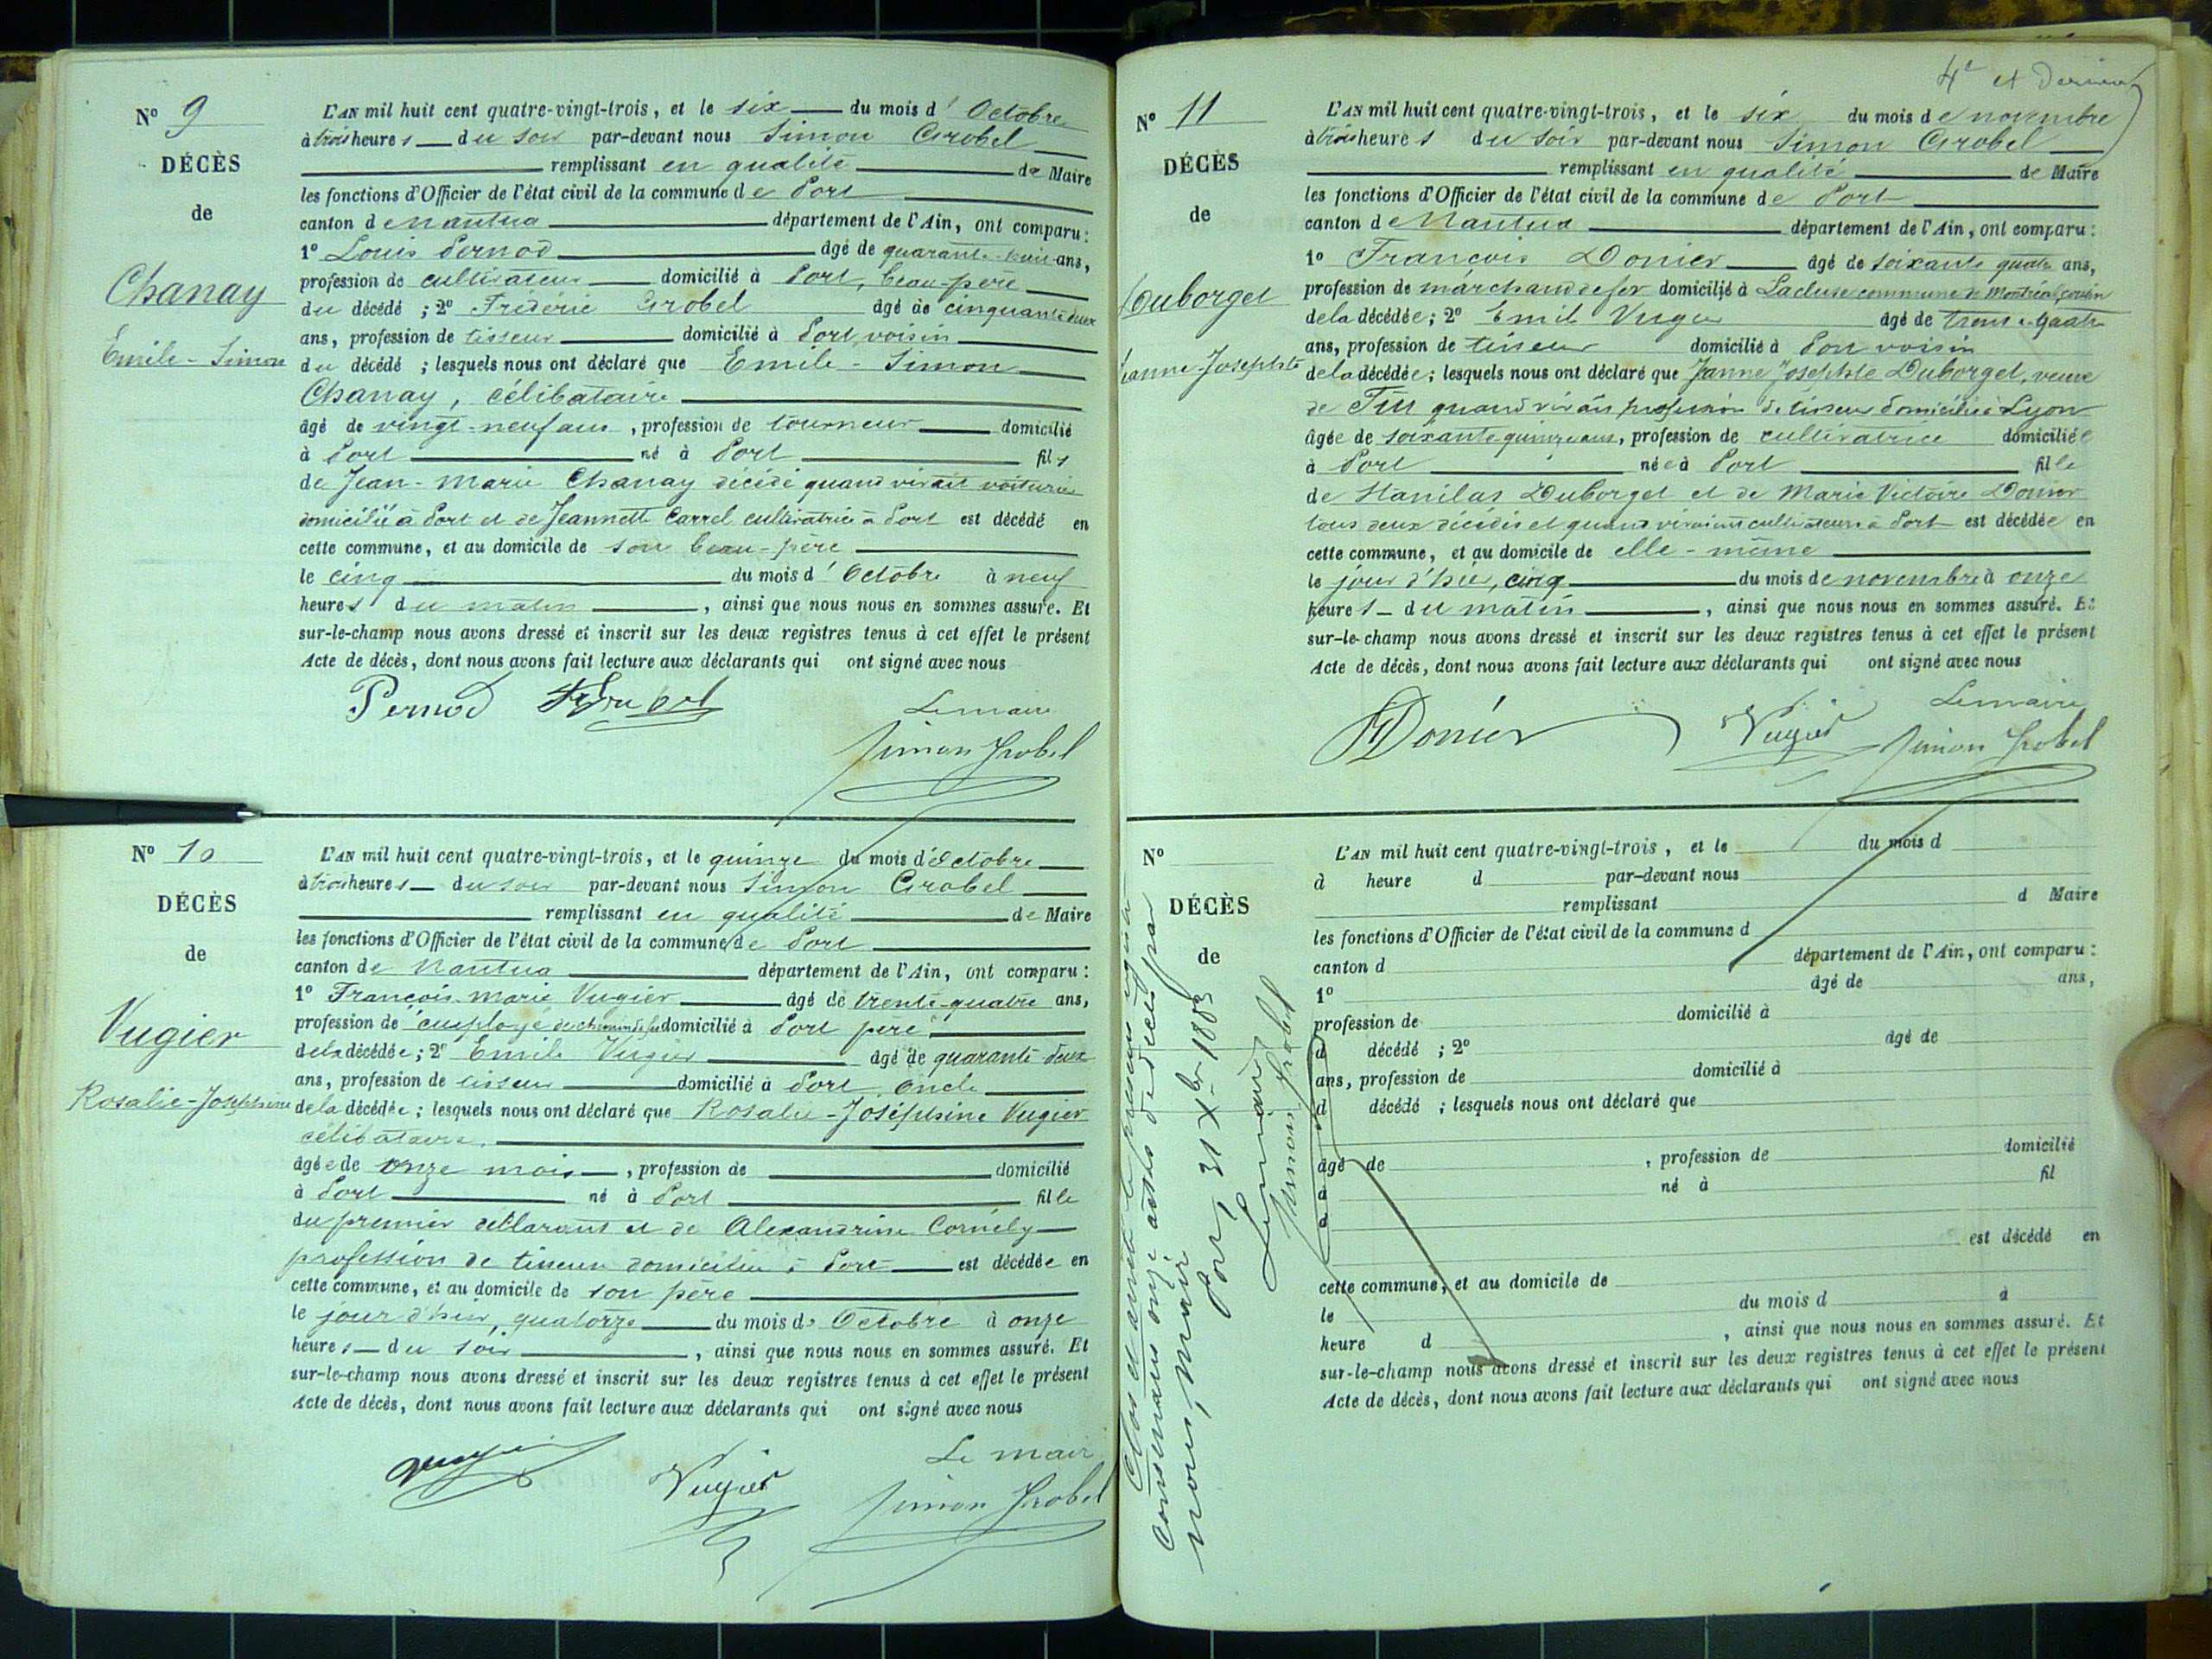 N° 9
DÉCÈS
de
Chanay
Emile-Simon
L'AN mil huit cent quatre-vingt-trois, et le six du mois d'Octobre
à trois heures du soir par-devant nous Simon Grobel
remplissant en qualité de Maire
les fonctions d'Officier de l'état civil de la commune de Port
canton de Nantua département de l'Ain, ont comparu :
1° Louis Pernod âgé de quarante-huit ans,
profession de cultivateur domicilié à Port, beau-père
du décédé ; 2° Frédéric Grobel âgé de cinquante deux
ans, profession de tisseur domicilié à Port, voisin
du décédé ; lesquels nous ont déclaré que Emile-Simon
Chanay, célibataire
âgé de vingt-neuf ans, profession de tourneur domicilié
à Port né à Port fils
de Jean-Marie Chanay décédé quand vivait voiturier
domicilié à Port et de Jeannette Carrel cultivatrice à Port est décédé en
cette commune, et au domicile de son beau-père
le cinq du mois d'Octobre à neuf
heures du matin, ainsi que nous nous en sommes assuré. Et
sur-le-champ nous avons dressé et inscrit sur les deux registres tenus à cet effet le présent
Acte de décès, dont nous avons fait lecture aux déclarants qui ont signé avec nous
Pernod Le maire
Simon Grobel
N° 10
DÉCÈS
de
Vugier
Rosalie-Joséphine
L'AN mil huit cent quatre-vingt-trois, et le quinze du mois d'Octobre
à trois heures du soir par-devant nous Simon Grobel
remplissant en qualité de Maire
les fonctions d'Officier de l'état civil de la commune de Port
canton de Nantua département de l'Ain, ont comparu :
1° François-Marie Vugier âgé de trente-quatre ans,
profession de employé de chemin de fer domicilié à Port père
de la décédée ; 2° Emile Vugier âgé de quarante deux
ans, profession de tisseur domicilié à Port, oncle
de la décédée ; lesquels nous ont déclaré que Rosalie-Joséphine Vugier
célibataire,
âgée de onze mois, profession de domicilié
à Port né à Port fille
du premier déclarant et de Alexandrine Cornély
profession de tisseur domiciliée à Port est décédée en
cette commune, et au domicile de son père
le jour d'hier, quatorze du mois d'Octobre à onze
heures du soir, ainsi que nous nous en sommes assuré. Et
sur-le-champ nous avons dressé et inscrit sur les deux registres tenus à cet effet le présent
Acte de décès, dont nous avons fait lecture aux déclarants qui ont signé avec nous
Vugier Le maire
Simon Grobel
4e et dernier
N° 11
DÉCÈS
de
Duborget
Jeanne-Josephte
L'AN mil huit cent quatre-vingt-trois, et le six du mois de novembre
à trois heures du soir par-devant nous Simon Grobel
remplissant en qualité de Maire
les fonctions d'Officier de l'état civil de la commune de Port
canton de Nantua département de l'Ain, ont comparu :
1° François Donier âgé de soixante quatre ans,
profession de marchand de fer domicilié à Lacluse commune de Montréal, cousin
de la décédée ; 2° Emile Vugier âgé de trente-quatre
ans, profession de tisseur domicilié à Port voisin
de la décédée ; lesquels nous ont déclaré que Janne Josephte Duborget, veuve
de quand vivait profession de tisseur domicilié à Lyon
âgée de soixante quinze ans, profession de cultivatrice domiciliée
à Port née à Port fille
de Stanilas Duborget et de Marie Victoire Donier
tous deux décédés et quand vivaient cultivateurs à Port est décédée en
cette commune, et au domicile de elle-même
le jour d'hier, cinq du mois de novembre à onze
heures du matin, ainsi que nous nous en sommes assuré. Et
sur-le-champ nous avons dressé et inscrit sur les deux registres tenus à cet effet le présent
Acte de décès, dont nous avons fait lecture aux déclarants qui ont signé avec nous
Donier Vugier Le maire
Simon Grobel
N°
DÉCÈS
de
L'AN mil huit cent quatre-vingt-trois, et le du mois d
à heure d par-devant nous
remplissant d Maire
les fonctions d'Officier de l'état civil de la commune d
canton d département de l'Ain, ont comparu :
1° âgé de ans,
profession de domicilié à
d décédé ; 2° âgé de
ans, profession de domicilié à
d décédé ; lesquels nous ont déclaré que
âgé de , profession de domicilié
à né à fil
d
est décédé en
cette commune, et au domicile de
le du mois d à
heure d , ainsi que nous nous en sommes assuré. Et
sur-le-champ nous avons dressé et inscrit sur les deux registres tenus à cet effet le présent
Acte de décès, dont nous avons fait lecture aux déclarants qui ont signé avec nous
Clos et arrêté le présent registre
contenant onze actes de décès par
nous, Maire
Port, 31 Xbre 1883
Le maire
Simon Grobel